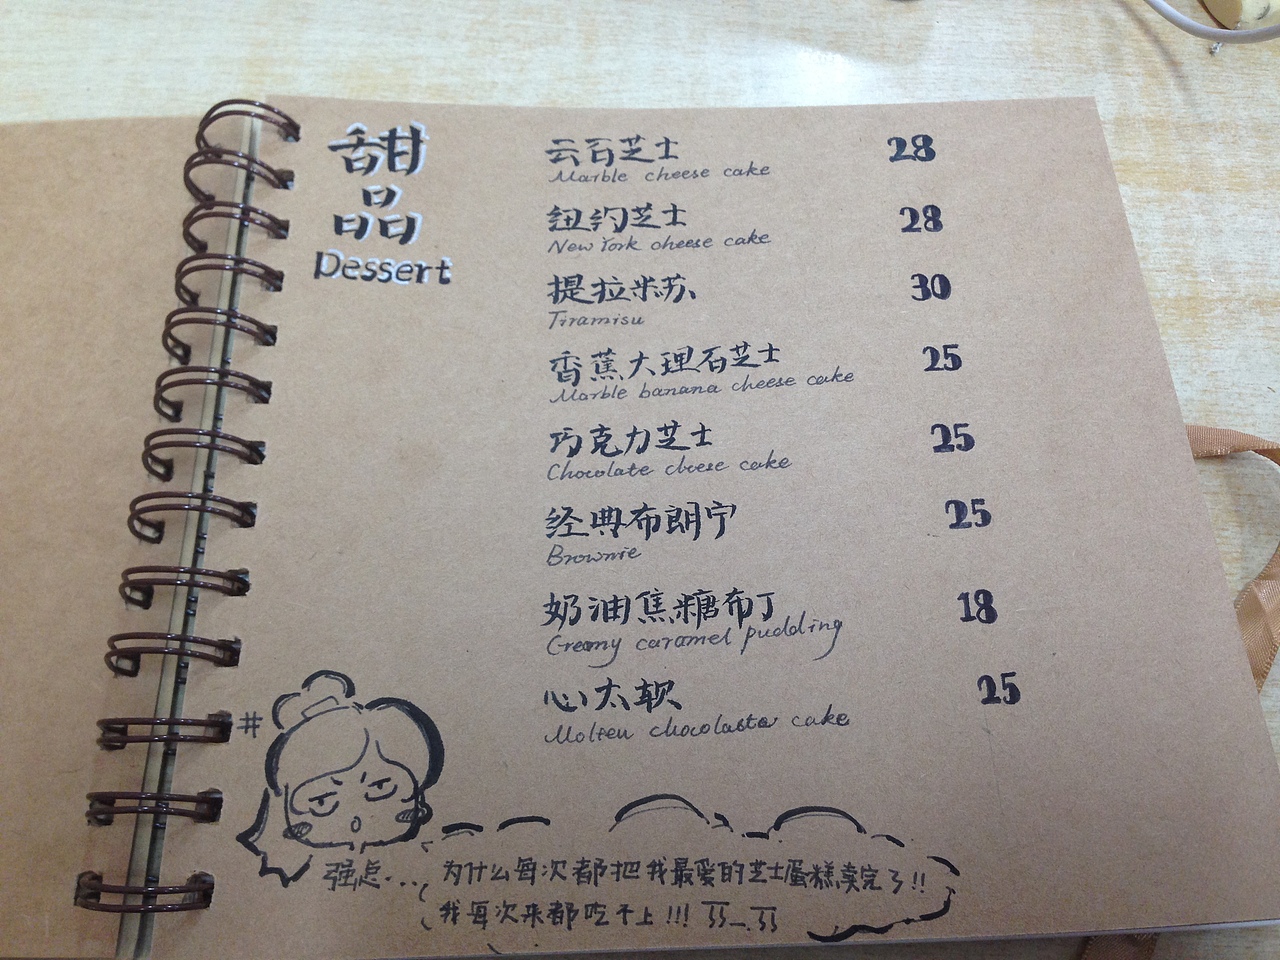 甜品
Dessert
云石芝士 28
Marble cheese cake
纽约芝士 28
New York cheese cake
提拉米苏 30
Tiramisu
香蕉大理石芝士 25
Marble banana cheese cake
巧克力芝士 25
Chocolate cheese cake
经典布朗宁 25
Brownie
奶油焦糖布丁 18
Creamy caramel pudding
心太软 25
Molten chocolate cake
#
强忍...
为什么每次都把我最爱的芝士蛋糕卖完了!!
我每次来都吃不上!!!